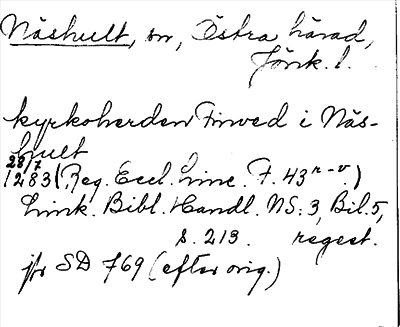 Näshult, sn, Östra härad,
Jönk. l.
kyrkoherden Finved i Näs-
hult
28/7
1283 (Reg. Eccl. Linc. F. 43 r-v)
Link. Bibl. Handl. NS: 3, Bil. 5,
s. 213. regest.
jfr SD 769 (efter orig.)